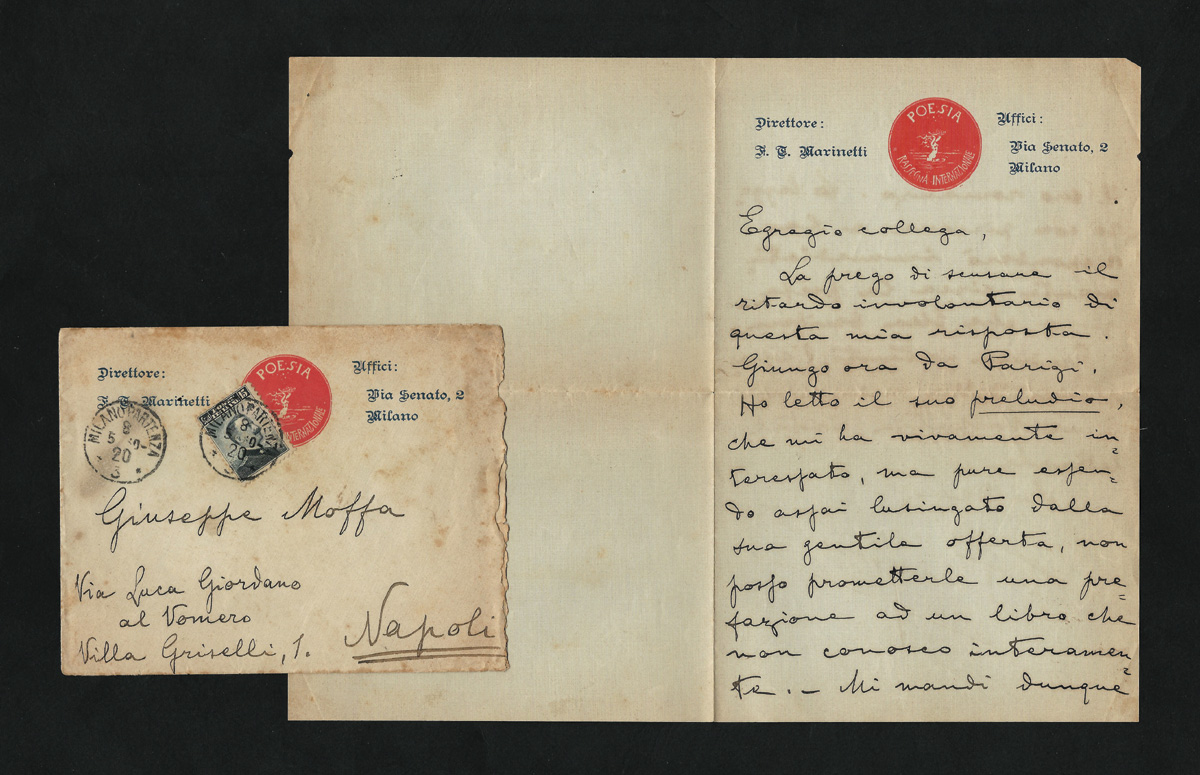 Direttore:
F. T. Marinetti
POESIA
RASSEGNA INTERNAZIONALE
Uffici:
Via Senato, 2
Milano
Egregio collega,
La prego di scusare il
ritardo involontario di
questa mia risposta.
Giungo ora da Parigi.
Ho letto il suo preludio,
che mi ha vivamente in=
teressato, ma pure essen=
do assai lusingato dalla
sua gentile offerta, non
posso prometterle una pre=
fazione ad un libro che
non conosco interamen=
te. – Mi mandi dunque
Direttore:
F. T. Marinetti
POESIA
INTERNAZIONALE
Uffici:
Via Senato, 2
Milano
MILANO PARTENZA
8
5
20
3
MILANO PARTENZA
8
20
Giuseppe Moffa
Via Luca Giordano
al Vomero
Villa Griselli, 1.
Napoli